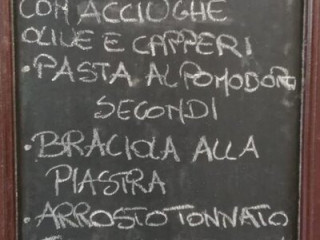 CON ACCIUGHE
OLIVE E CAPPERI
• PASTA AL POMODORO
SECONDI
• BRACIOLA ALLA
PIASTRA
• ARROSTO TONNATO